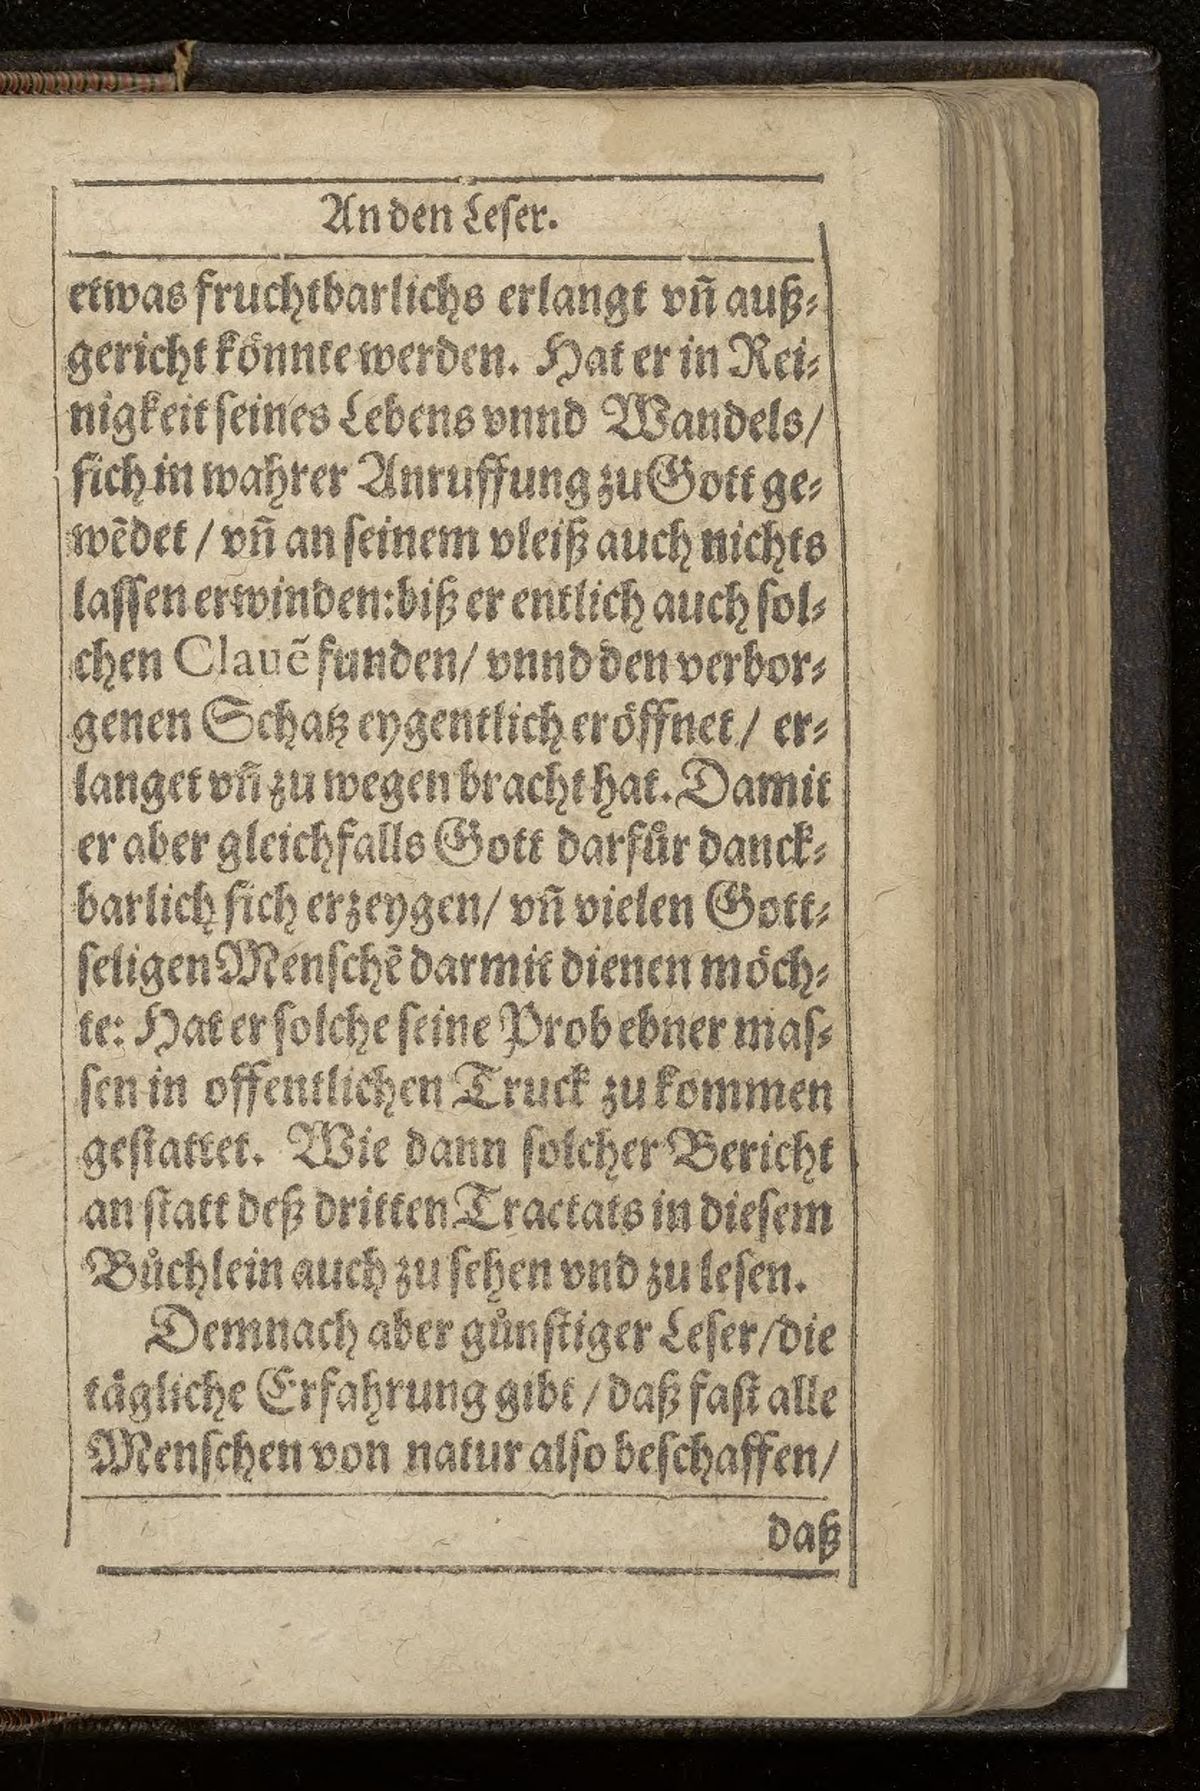 An den Leſer.
etwas fruchtbarlichs erlangt vñ auß⸗
gericht könnte werden. Hat er in Rei⸗
nigkeit ſeines Lebens vnnd Wandels/
ſich in wahrer Anruffung zu Gott ge⸗
wẽdet / vñ an ſeinem vleiß auch nichts
laſſen erwinden: biß er entlich auch ſol⸗
chen Clauẽ funden/ vnnd den verbor⸗
genen Schatz eygentlich eröffnet / er⸗
langet vñ zu wegen bracht hat. Damit
er aber gleichfalls Gott darfuͤr danck⸗
barlich ſich erzeygen/ vñ vielen Gott⸗
ſeligen Menſchẽ darmit dienen möch⸗
te: Hat er ſolche ſeine Prob ebner maſ⸗
ſen in offentlichen Truck zu kommen
geſtattet. Wie dann ſolcher Bericht
an ſtatt deß dritten Tractats in dieſem
Buͤchlein auch zu ſehen vnd zu leſen.
Demnach aber guͤnſtiger Leſer/die
tägliche Erfahrung gibt / daß faſt alle
Menſchen von natur alſo beſchaffen/
daß